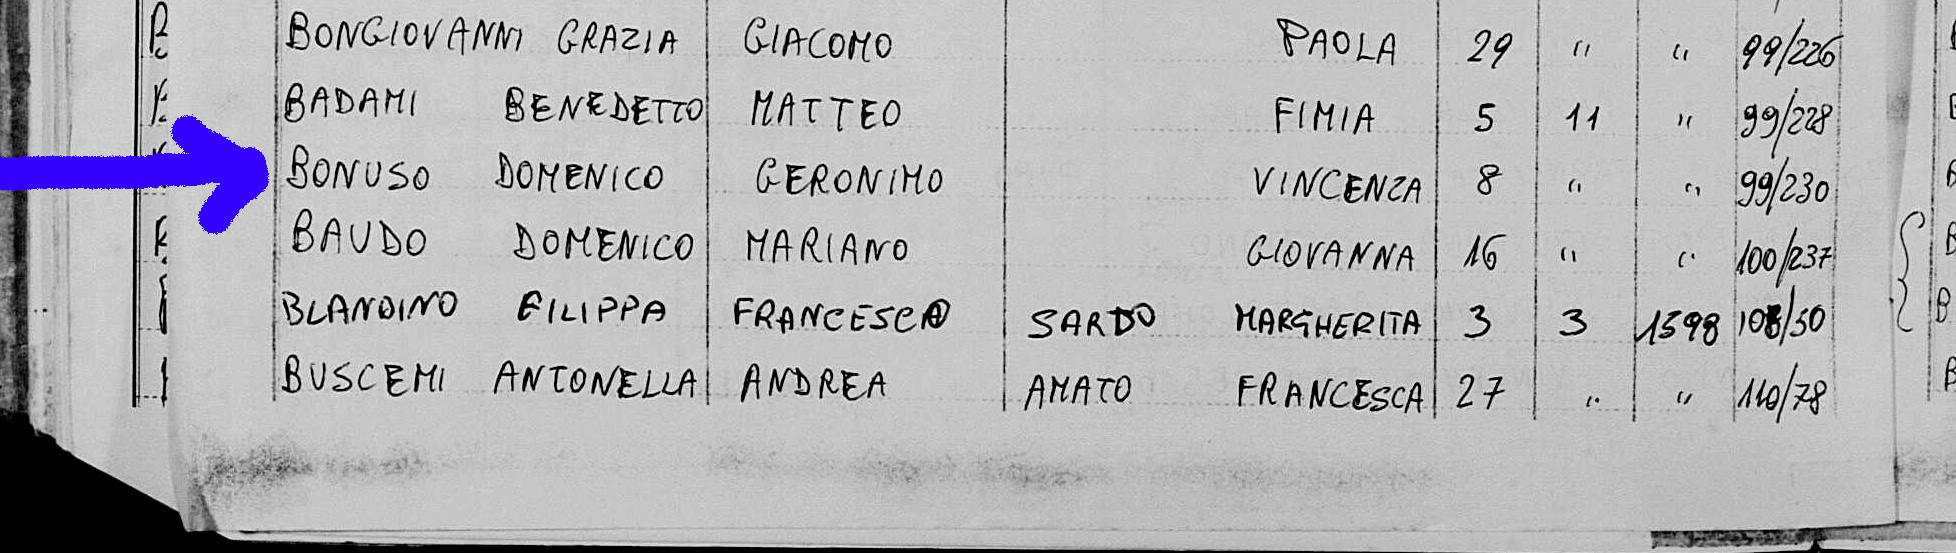 BONGIOVANNI GRAZIA GIACOMO PAOLA 29 " " 99/226
BADAMI BENEDETTO MATTEO FIMIA 5 11 " 99/228
BONUSO DOMENICO GERONIMO VINCENZA 8 " " 99/230
BAUDO DOMENICO MARIANO GIOVANNA 16 " " 100/237
BLANDINO FILIPPA FRANCESCO SARDO MARGHERITA 3 3 1598 /50
BUSCEMI ANTONELLA ANDREA AMATO FRANCESCA 27 " " 110/78